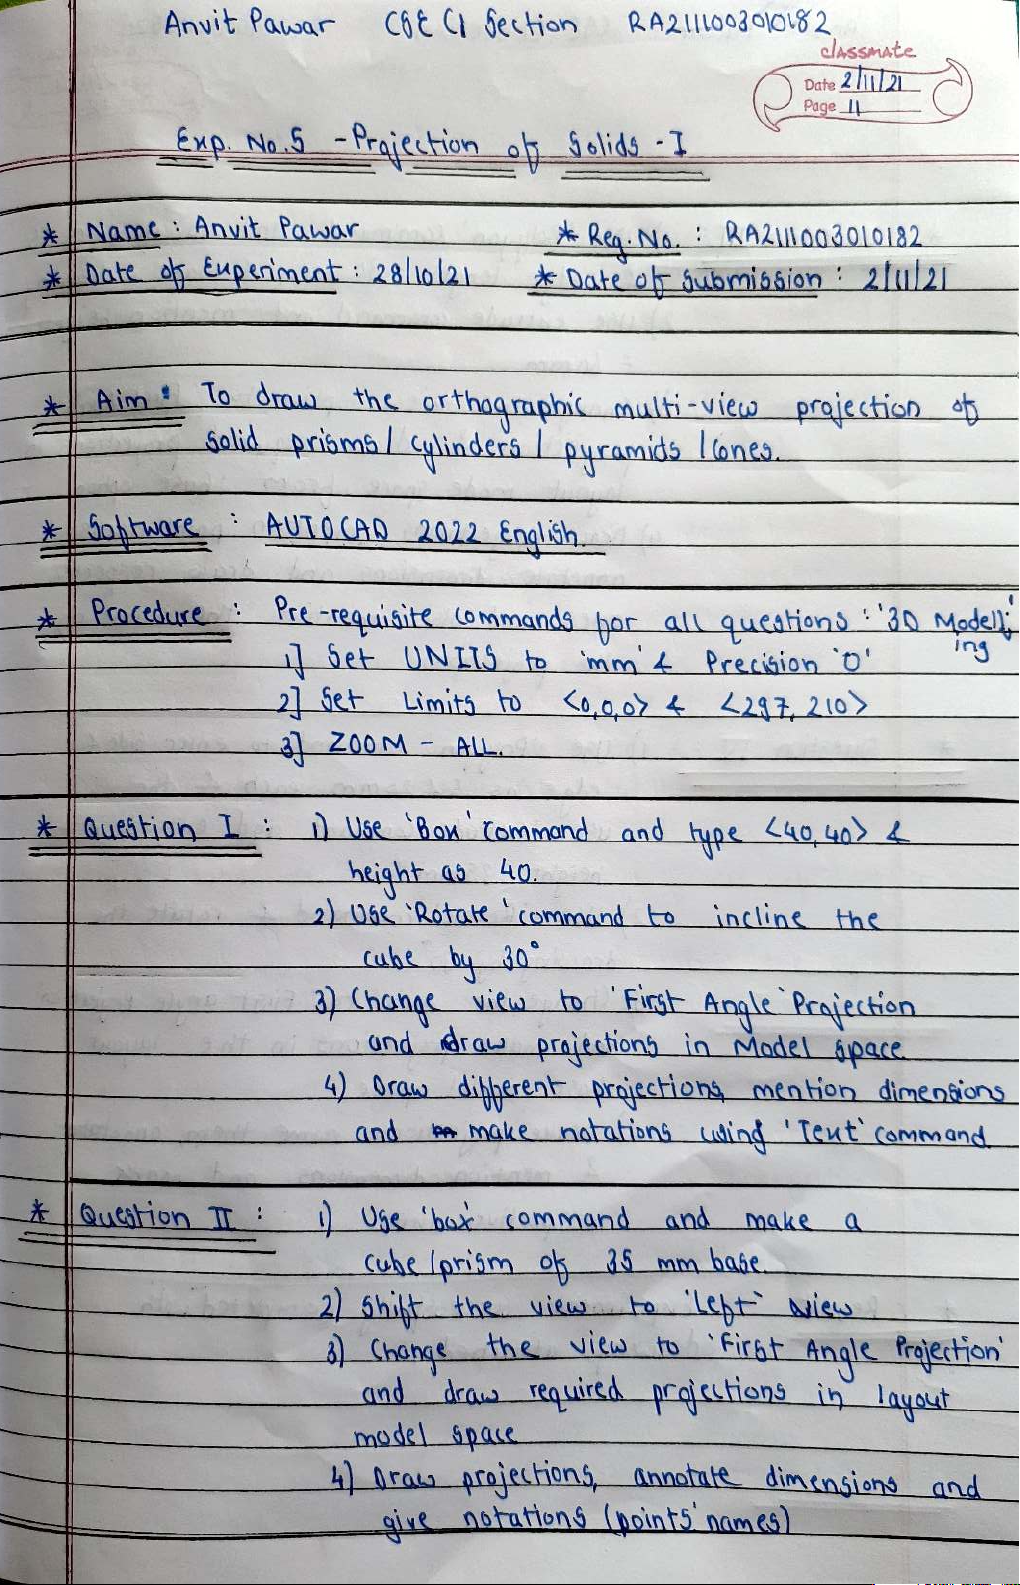 Anvit Pawar CSE C1 Section RA2111003010182
classmate
Date 2/11/21
Page 11
Exp. No.5 - Projection of Solids - I
* Name : Anvit Pawar * Reg. No. : RA2111003010182
* Date of Experiment : 28/10/21 * Date of Submission : 2/11/21
* Aim : To draw the orthographic multi-view projection of
solid prisms / cylinders / pyramids / cones.
* Software : AUTOCAD 2022 English.
* Procedure : Pre-requisite commands for all questions : '3D Modell-
ing'
1] Set UNITS to 'mm' & Precision '0'
2] Set Limits to <0,0,0> & <297, 210>
3] ZOOM - ALL.
* Question I : 1) Use 'Box' command and type <40,40> &
height as 40.
2) Use 'Rotate' command to incline the
cube by 30°
3) Change view to 'First Angle' Projection
and draw projections in Model space.
4) Draw different projections, mention dimensions
and make notations using 'Text' command
* Question II : 1) Use 'box' command and make a
cube/prism of 35 mm base.
2) Shift the view to 'Left' view
3) Change the view to 'First Angle Projection'
and draw required projections in layout
model space
4) Draw projections, annotate dimensions and
give notations (points' names)